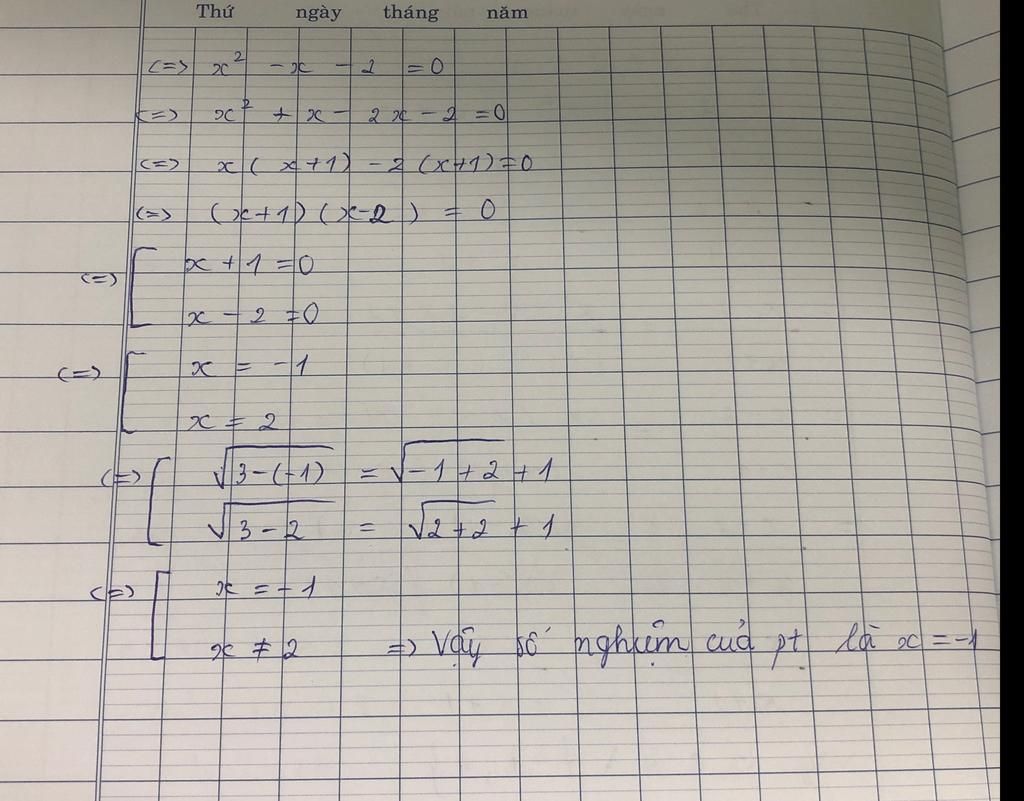 Thứ ngày tháng năm
<=> x² - x - 2 = 0
<=> x² + x - 2x - 2 = 0
<=> x(x+1) - 2(x+1) = 0
<=> (x+1)(x-2) = 0
<=> [ x + 1 = 0
x - 2 = 0
<=> [ x = -1
x = 2
<=> [ √(3-(-1)) = √(-1+2) + 1
√(3-2) = √(2+2) + 1
<=> [ x = -1
x ≠ 2 => Vậy số nghiệm của pt là x = -1